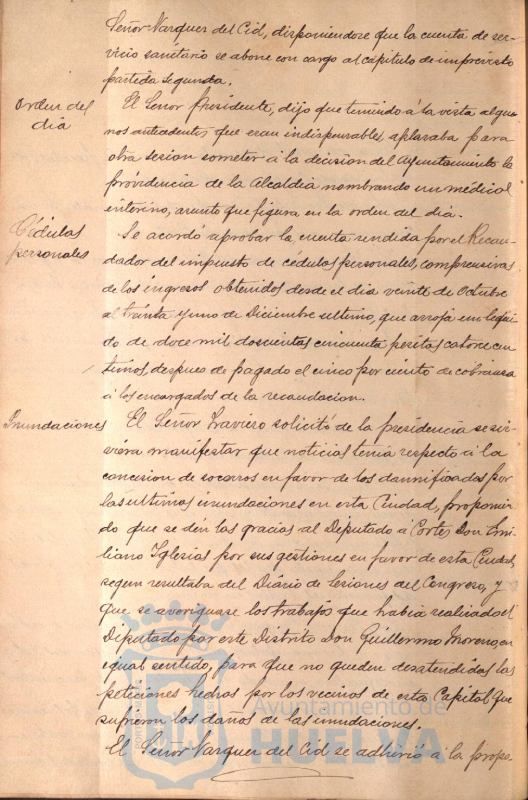 Señor Vazquez del Cid, disponiendose que la cuenta de ser-
vicio sanitario se abone con cargo al capitulo de imprevistos
partida segunda.
Orden del
dia
El Señor Presidente, dijo que teniendo á la vista algu-
nos antecedentes que eran indispensables, aplazaba para
otra sesion someter á la decision del Ayuntamiento la
providencia de la Alcaldia nombrando un médico
interino, asunto que figura en la orden del dia.
Cédulas
personales
Se acordó aprobar la cuenta rendida por el Recau-
dador del impuesto de cédulas personales, comprensiva
de los ingresos obtenidos desde el dia veinte de Octubre
al treinta y uno de Diciembre ultimo, que arroja un liqui-
do de doce mil doscientas cincuenta pesetas catorce cen-
timos, despues de pagado el cinco por ciento de cobranza
á los encargados de la recaudacion.
Inundaciones
El Señor Traviero solicitó de la presidencia se sir-
viera manifestar que noticias tenia respecto á la
concesion de socorros en favor de los damnificados por
las ultimas inundaciones en esta Ciudad, proponien-
do que se dén las gracias al Diputado á Cortes Don Emi-
liano Iglesias por sus gestiones en favor de esta Ciudad,
segun resultaba del Diario de Sesiones del Congreso, y
que se averiguase los trabajos que habia realizado el
Diputado por este Distrito Don Guillermo Moreno, en
igual sentido, para que no queden desatendidas las
peticiones hechas por los vecinos de esta Capital que
sufrieron los daños de las inundaciones.
El Señor Vazquez del Cid se adhirió á la propo-
Ayuntamiento de
HUELVA